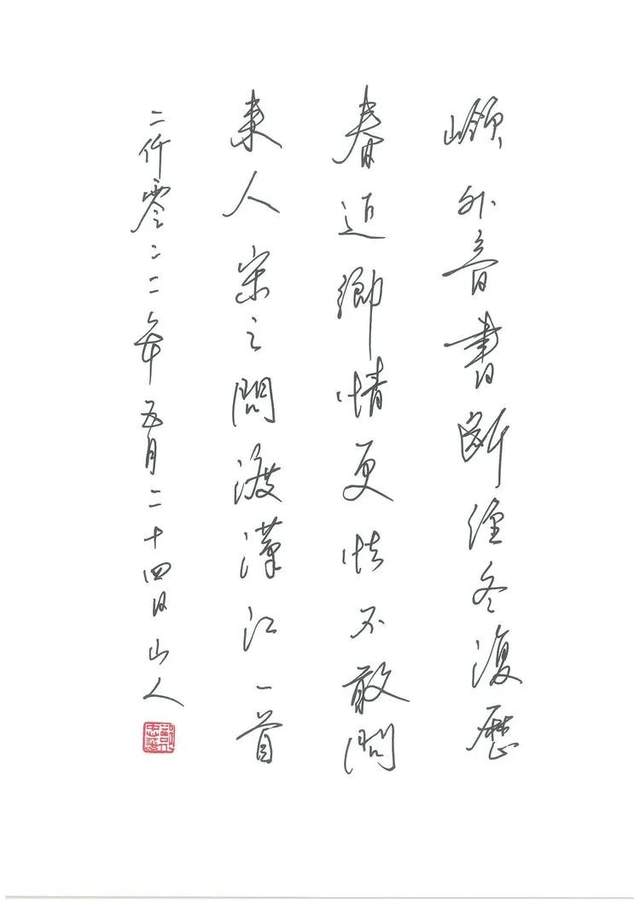 嶺外音書斷經冬復歷
春近鄉情更怯不敢問
來人宋之問渡漢江一首
二仟零二二年五月二十四日山人